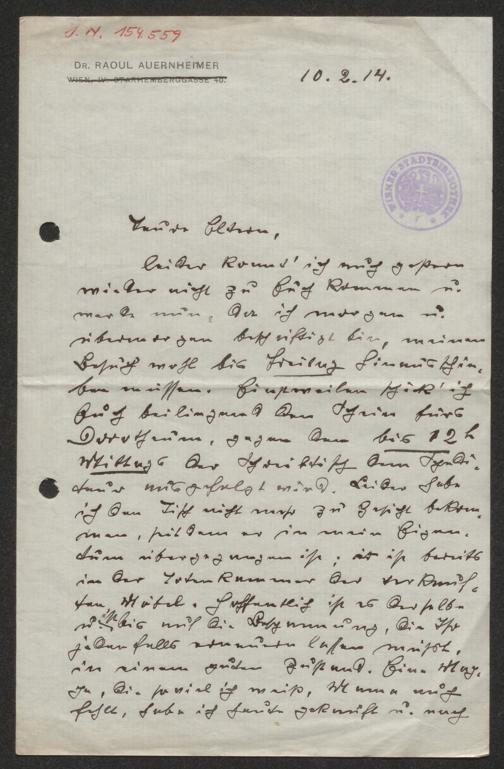 J. N. 154.559
DR. RAOUL AUERNHEIMER
WIEN, IV. STARHEMBERGGASSE 40.
10. 2. 14.
WIENER STADTBIBLIOTHEK
Teure Eltern,
leider konnt' ich auch gestern
wieder nicht zu Euch kommen u.
werde nun, da ich morgen u.
übermorgen beschäftigt bin, meinen
Besuch wohl bis Freitag hinausschie-
ben müssen. Einstweilen schick' ich
Euch beiliegend den Schein fürs
Dorotheum, gegen den bis 12 h
Mittags der Schreibtisch dem Spedi-
teur ausgefolgt wird. Leider habe
ich den Tisch nicht mehr zu Gesicht bekom-
men, seitdem er in mein Eigen-
tum übergegangen ist; er ist bereits
in der Totenkammer der verkauf-
ten Möbel. Hoffentlich ist es derselbe
u. ist bis auf die Bespannung, die Ihr
jedenfalls erneuern lassen müsst,
in einem guten Zustand. Eine Map-
pe, die soviel ich weiß, Mama auch
fehlt, habe ich heute gekauft u. auch